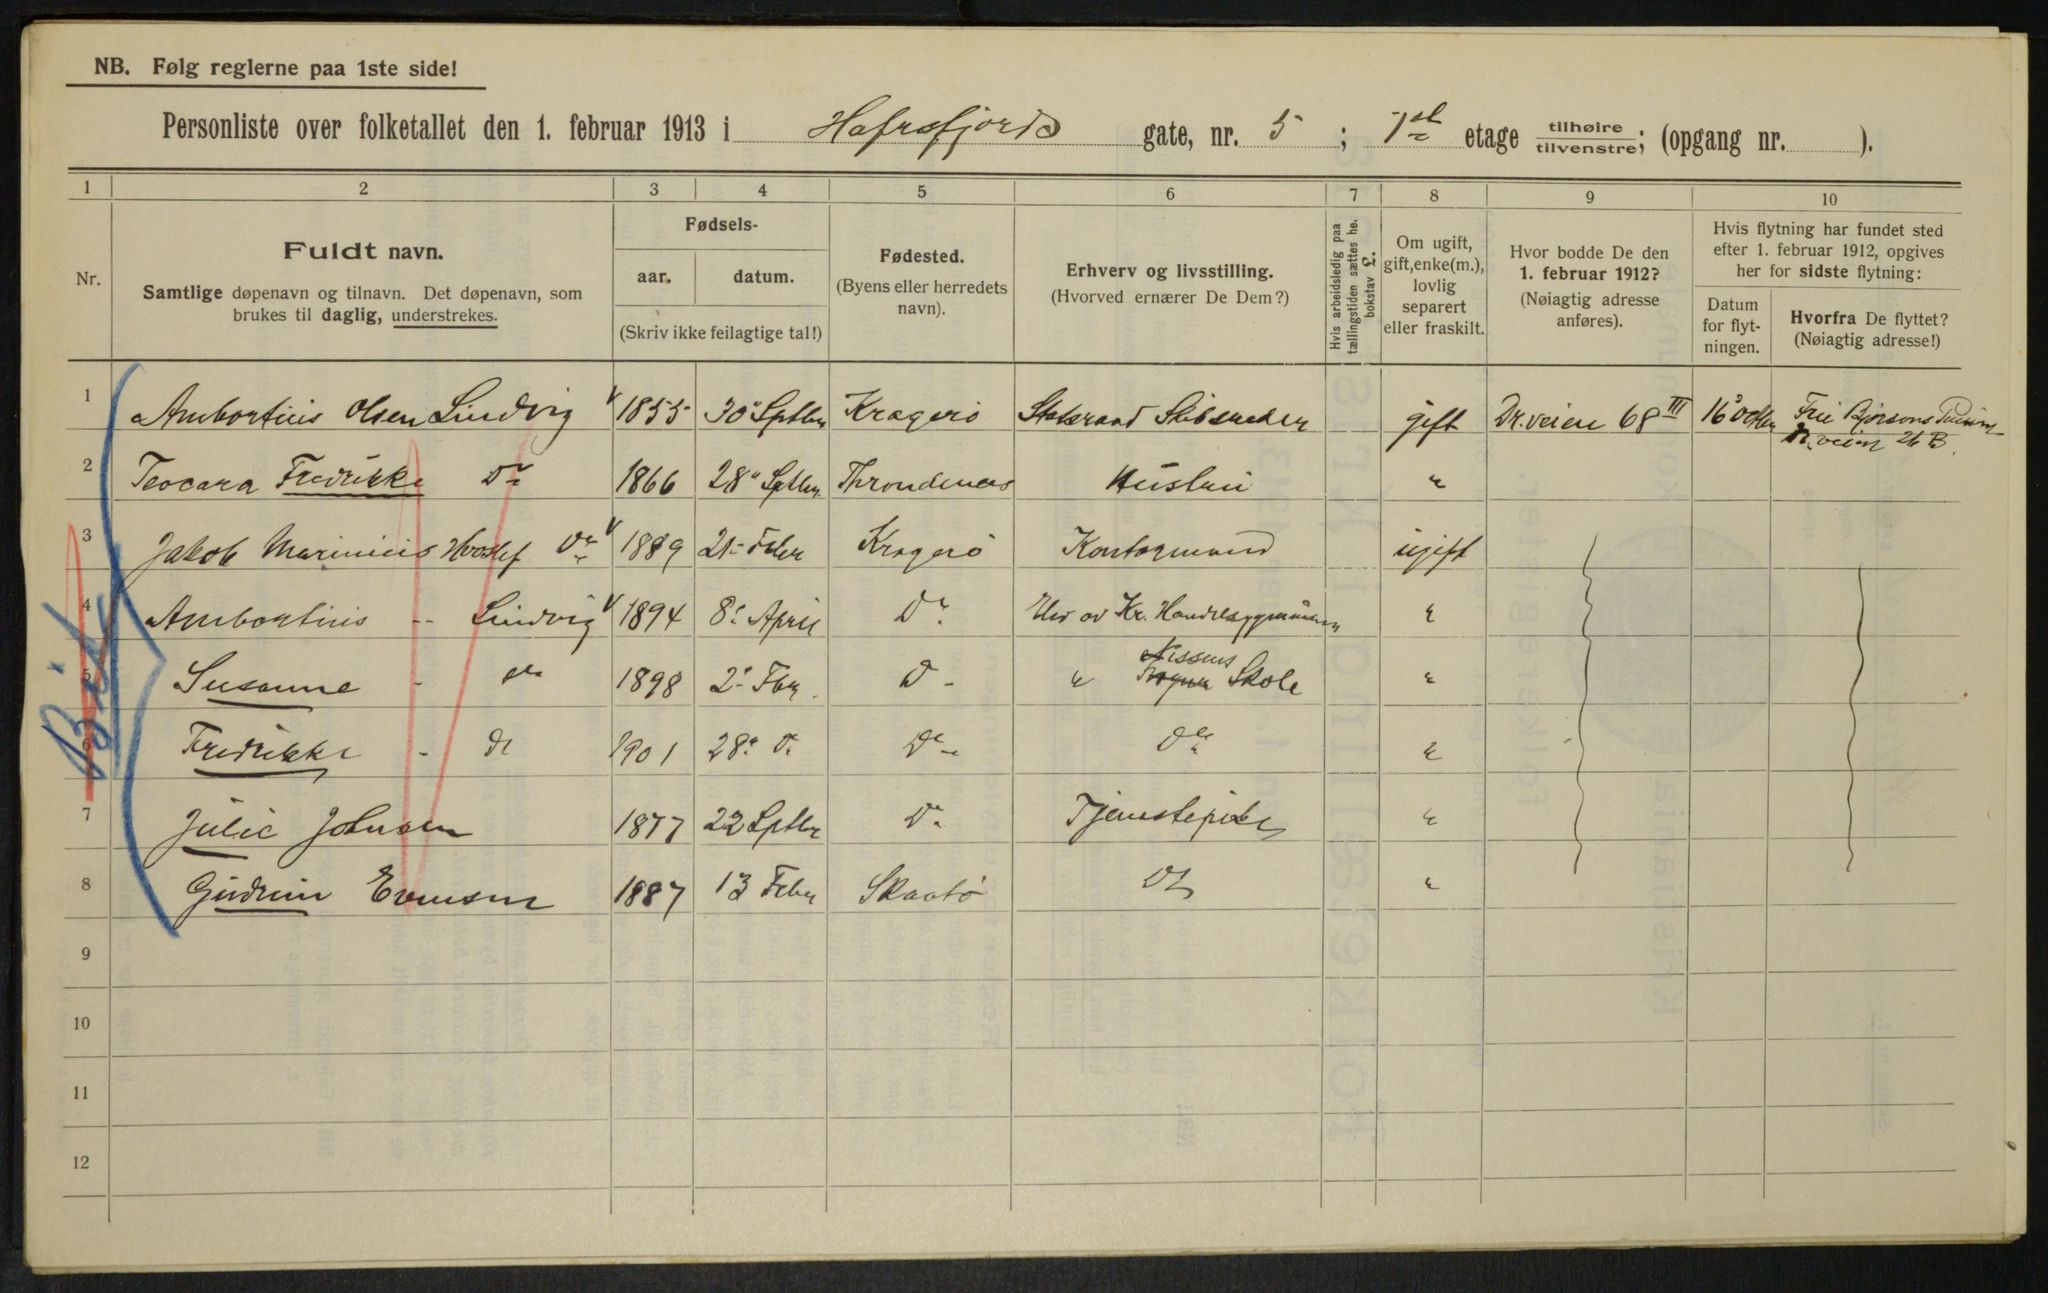 NB. Følg reglerne paa 1ste side!
Personliste over folketallet den 1. februar 1913 i Hafrsfjords gate, nr. 5 ; 1ste etage tilhøire tilvenstre; (opgang nr. ).
1 2 3 4 5 6 7 8 9 10
Nr.
Fuldt navn.
Samtlige døpenavn og tilnavn. Det døpenavn, som
brukes til daglig, understrekes.
Fødsels-
aar. datum.
(Skriv ikke feilagtige tal!)
Fødested.
(Byens eller herredets
navn).
Erhverv og livsstilling.
(Hvorved ernærer De Dem?)
Hvis arbeidsledig paa
tællingstiden sættes he.
bokstav L.
Om ugift,
gift, enke(m.),
lovlig
separert
eller fraskilt.
Hvor bodde De den
1. februar 1912?
(Nøiagtig adresse
anføres).
Hvis flytning har fundet sted
efter 1. februar 1912, opgives
her for sidste flytning:
Datum
for flyt-
ningen.
Hvorfra De flyttet?
(Nøiagtig adresse!)
1 Ambortius Olsen Lindvig 1855 30 Sptbr Kragerö Statsraad Skibsreder gift Dr.veien 68 III 16 Octbr Frk Bjørsons
Dr. veien 26 B.
2 Teocara Fredrikke Do 1866 28 Sptbr. Throndenæs Hustru "
3 Jakob Marinius Hvoslef Do 1889 21 Febr Kragerö Kontormand ugift
4 Ambortius -- Lindvig 1894 8 April Do Elev av Kr. Handelsgymnasium "
5 Susanne - do 1898 2 Fbr. D - " Nissens Skole "
6 Fredrikke - do 1901 28 D. Do Do "
7 Julie Johnsen 1877 22 Sptbr Do Tjenestepike "
8 Gudrun Evensen 1887 13 Febr Skaatö Do "
9
10
11
12